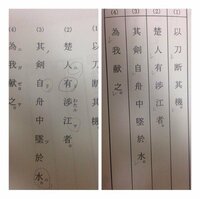 (1) 以刀断其機
(2) 楚人有渉江者
(3) 其剣自舟中墜於水
(4) 為我献之
(1) 以刀断其機
(2) 楚人有渉江者
(3) 其剣自舟中墜於水
(4) 為我献之